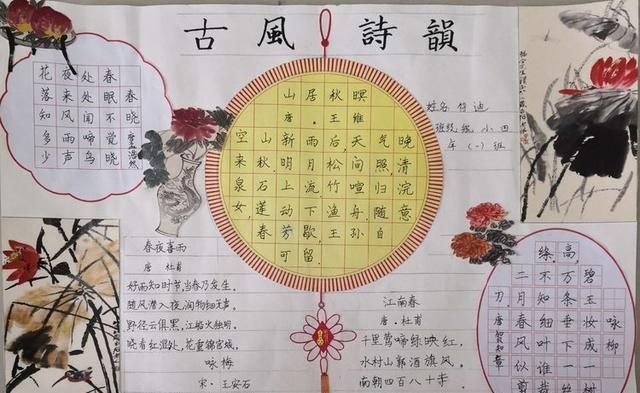 古風詩韻
春晓
孟浩然
春眠不觉晓
处处闻啼鸟
夜来风雨声
花落知多少
山居秋暝
唐·王维
空山新雨后天气晚
来秋明月松间照清
泉石上流竹喧归浣
女莲动下渔舟随意
春芳歇王孙自
可留
姓名
小四
年(一)班
春夜喜雨
唐 杜甫
好雨知时节,当春乃发生。
随风潜入夜,润物细无声。
野径云俱黑,江船火独明。
晓看红湿处,花重锦官城。
咏梅
宋·王安石
江南春
唐·杜甫
千里莺啼绿映红,
水村山郭酒旗风。
南朝四百八十寺
咏柳
碧玉妆成一树
高,
万条垂下一丝
绦
不知细叶谁裁
二月春风似剪
刀.
唐 贺知章